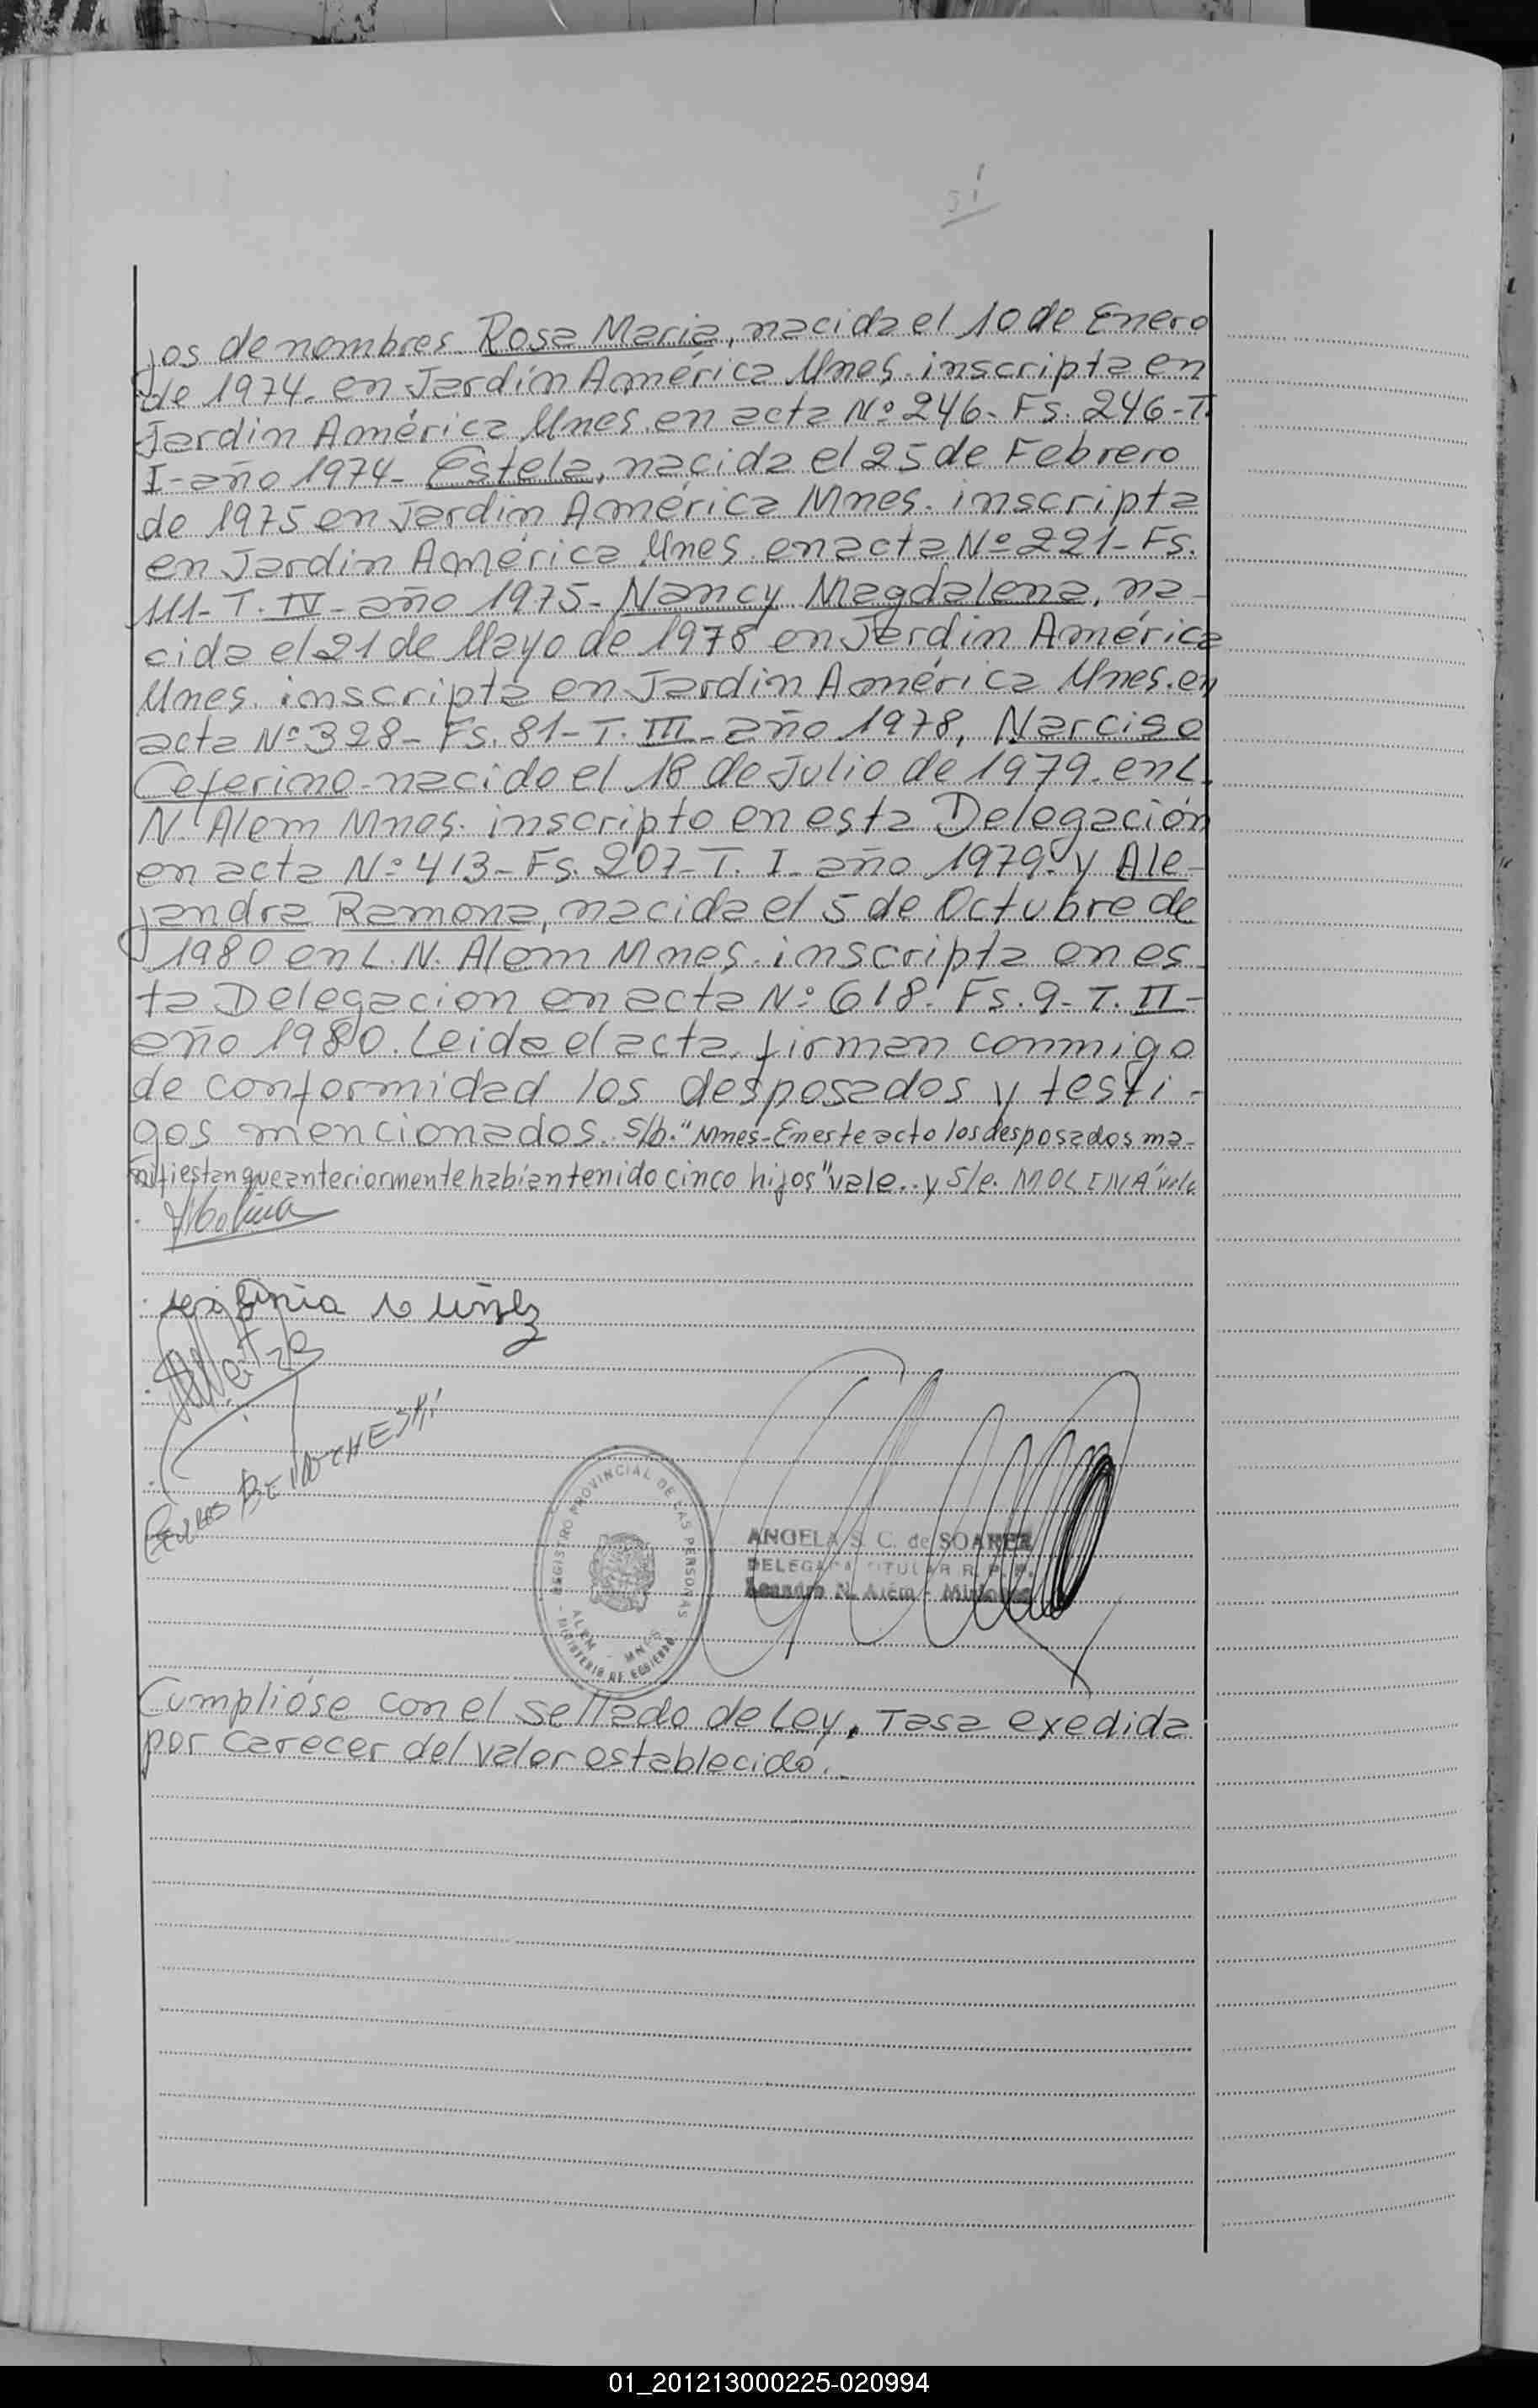 51
jos de nombres. Rosa Maria, nacida el 10 de Enero
de 1974. en Jardín América Mnes. inscripta en
Jardin América Mnes. en acta Nº 246- Fs. 246-T.
I-año 1974- Estela, nacida el 25 de Febrero
de 1975 en Jardin América Mnes. inscripta
en Jardin América Mnes. en acta Nº 221- Fs.
111- T. IV- año 1975- Nancy Magdalena, na-
cida el 21 de Mayo de 1978 en Jardin América
Mnes. inscripta en Jardin América Mnes. en
acta Nº 328- Fs. 81- T. III- año 1978, Narciso
Ceferino- nacido el 18 de Julio de 1979. en L.
N. Alem Mnes. inscripto en esta Delegación
en acta Nº 413- Fs. 207- T. I- año 1979. y Ale-
jandra Ramona, nacida el 5 de Octubre de
1980 en L. N. Alem Mnes. inscripta en es-
ta Delegacion en acta Nº 618- Fs. 9- T. II-
año 1980. Leida el acta, firman conmigo
de conformidad los desposados y testi-
gos mencionados. S/b. "Mnes- En este acto los desposados ma-
nifiestan que anteriormente habían tenido cinco hijos" vale.. y S/e. MOLINA vale
Molina
Núñez
REGISTRO PROVINCIAL DE LAS PERSONAS
ALEM - MNES
MINISTERIO DE GOBIERNO
ANGELA S. C. de SOAREZ
DELEGADA TITULAR R. P. P.
Leandro N. Alem - Misiones
Cumplióse con el sellado de Ley. Tasa exedida
por carecer del valor establecido.-
01_201213000225-020994